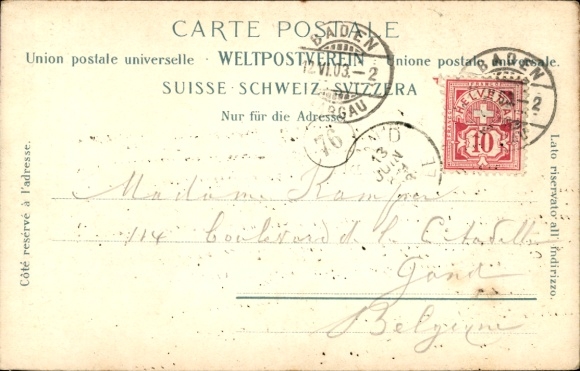 CARTE POSTALE
Union postale universelle · WELTPOSTVEREIN · Unione postale universale
SUISSE · SCHWEIZ · SVIZZERA
Nur für die Adresse
BADEN
12.VI.03.-2
AARGAU
BADEN
-2
HELVETIA
10
76
13
JUIN
Côté réservé à l'adresse.
Lato riservato all indirizzo.
Madame
114 Boulevard de la Citadelle
Gand
Belgique